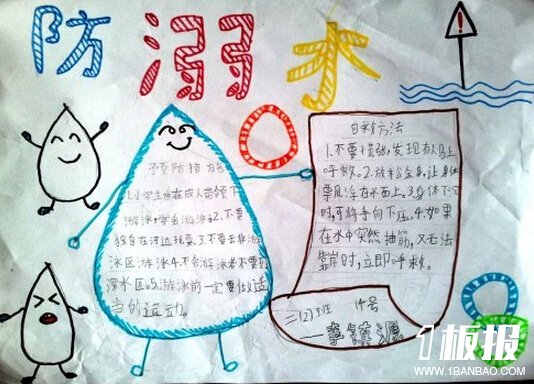 防溺水
预防措施
1.小学生应在成人带领下
游泳,学会游泳。2.不要
独自在河边玩耍。3.不要去非游
泳区游泳。4.不会游泳者不要到
深水区。5.游泳前一定要做适
当的运动。
自救方法
1.不要慌张,发现有人马上
呼救。2.放松全身,让身体
飘浮在水面上。3.身体下沉
时,可将手向下压。4.如果
在水中突然抽筋,又无法
靠岸时,立即呼救。
二(2)班
号
板报
WWW.1BANBAO.COM